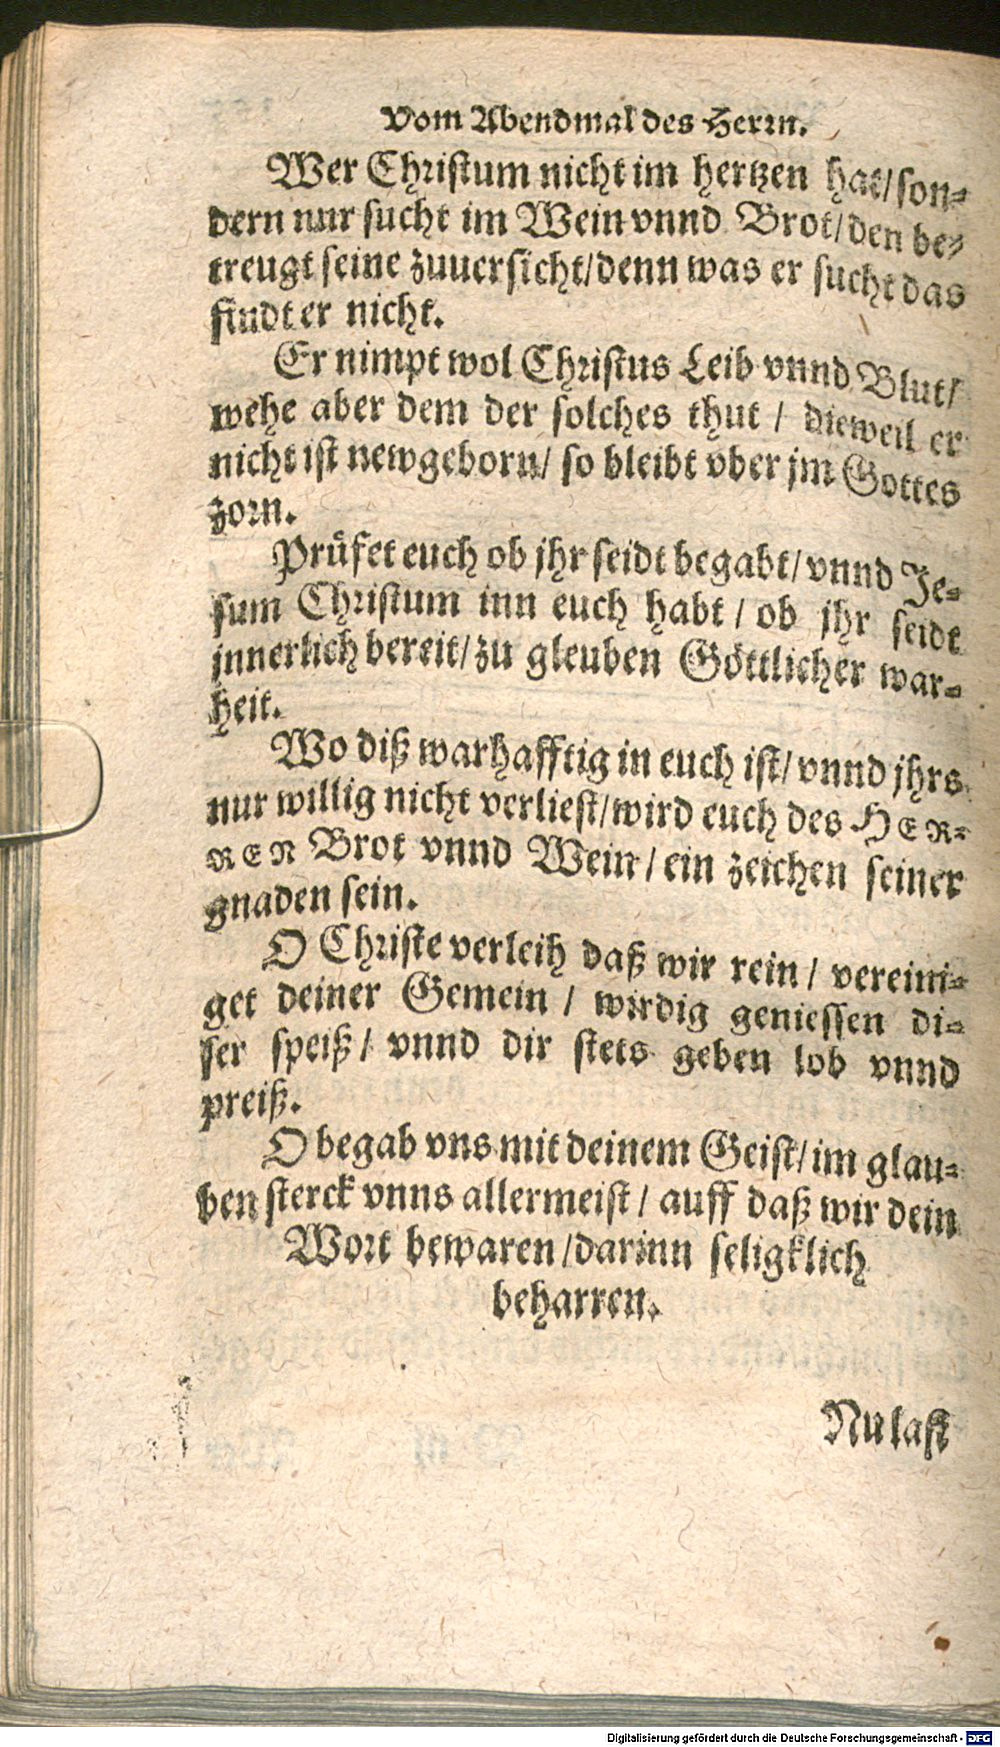 Vom Abendmal des Herrn.
Wer Christum nicht im hertzen hat/son-
dern nur sucht im Wein vnnd Brot/den be-
treugt seine zuuersicht/denn was er sucht das
findt er nicht.
Er nimpt wol Christus Leib vnnd Blut/
wehe aber dem der solches thut / dieweil er
nicht ist newgeborn/ so bleibt vber jm Gottes
zorn.
Prüfet euch ob jhr seidt begabt/vnnd Je-
sum Christum inn euch habt / ob jhr seidt
jnnerlich bereit/zu gleuben Göttlicher war-
heit.
Wo diß warhafftig in euch ist/vnnd jhrs
nur willig nicht verliest/wird euch des HER-
REN Brot vnnd Wein/ein zeichen seiner
gnaden sein.
O Christe verleih daß wir rein/ vereini-
get deiner Gemein / wirdig geniessen di-
ser speiß/ vnnd dir stets geben lob vnnd
preiß.
O begab vns mit deinem Geist/im glau-
ben sterck vnns allermeist/ auff daß wir dein
Wort bewaren/darinn seligklich
beharren.
Nu last
Digitalisierung gefördert durch die Deutsche Forschungsgemeinschaft - DFG